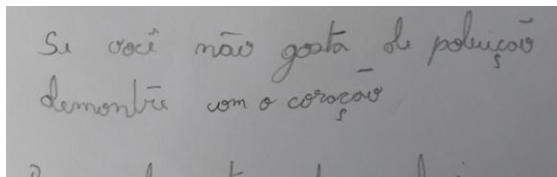 Se você não gosta de poluição
demontre com o coração